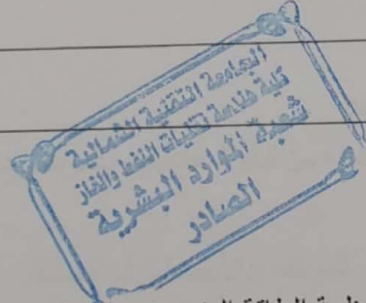 الجامعة التقنية الشمالية
كلية هندسة تقنيات النفط والغاز
شعبة الموارد البشرية
الصادر
الطاقة